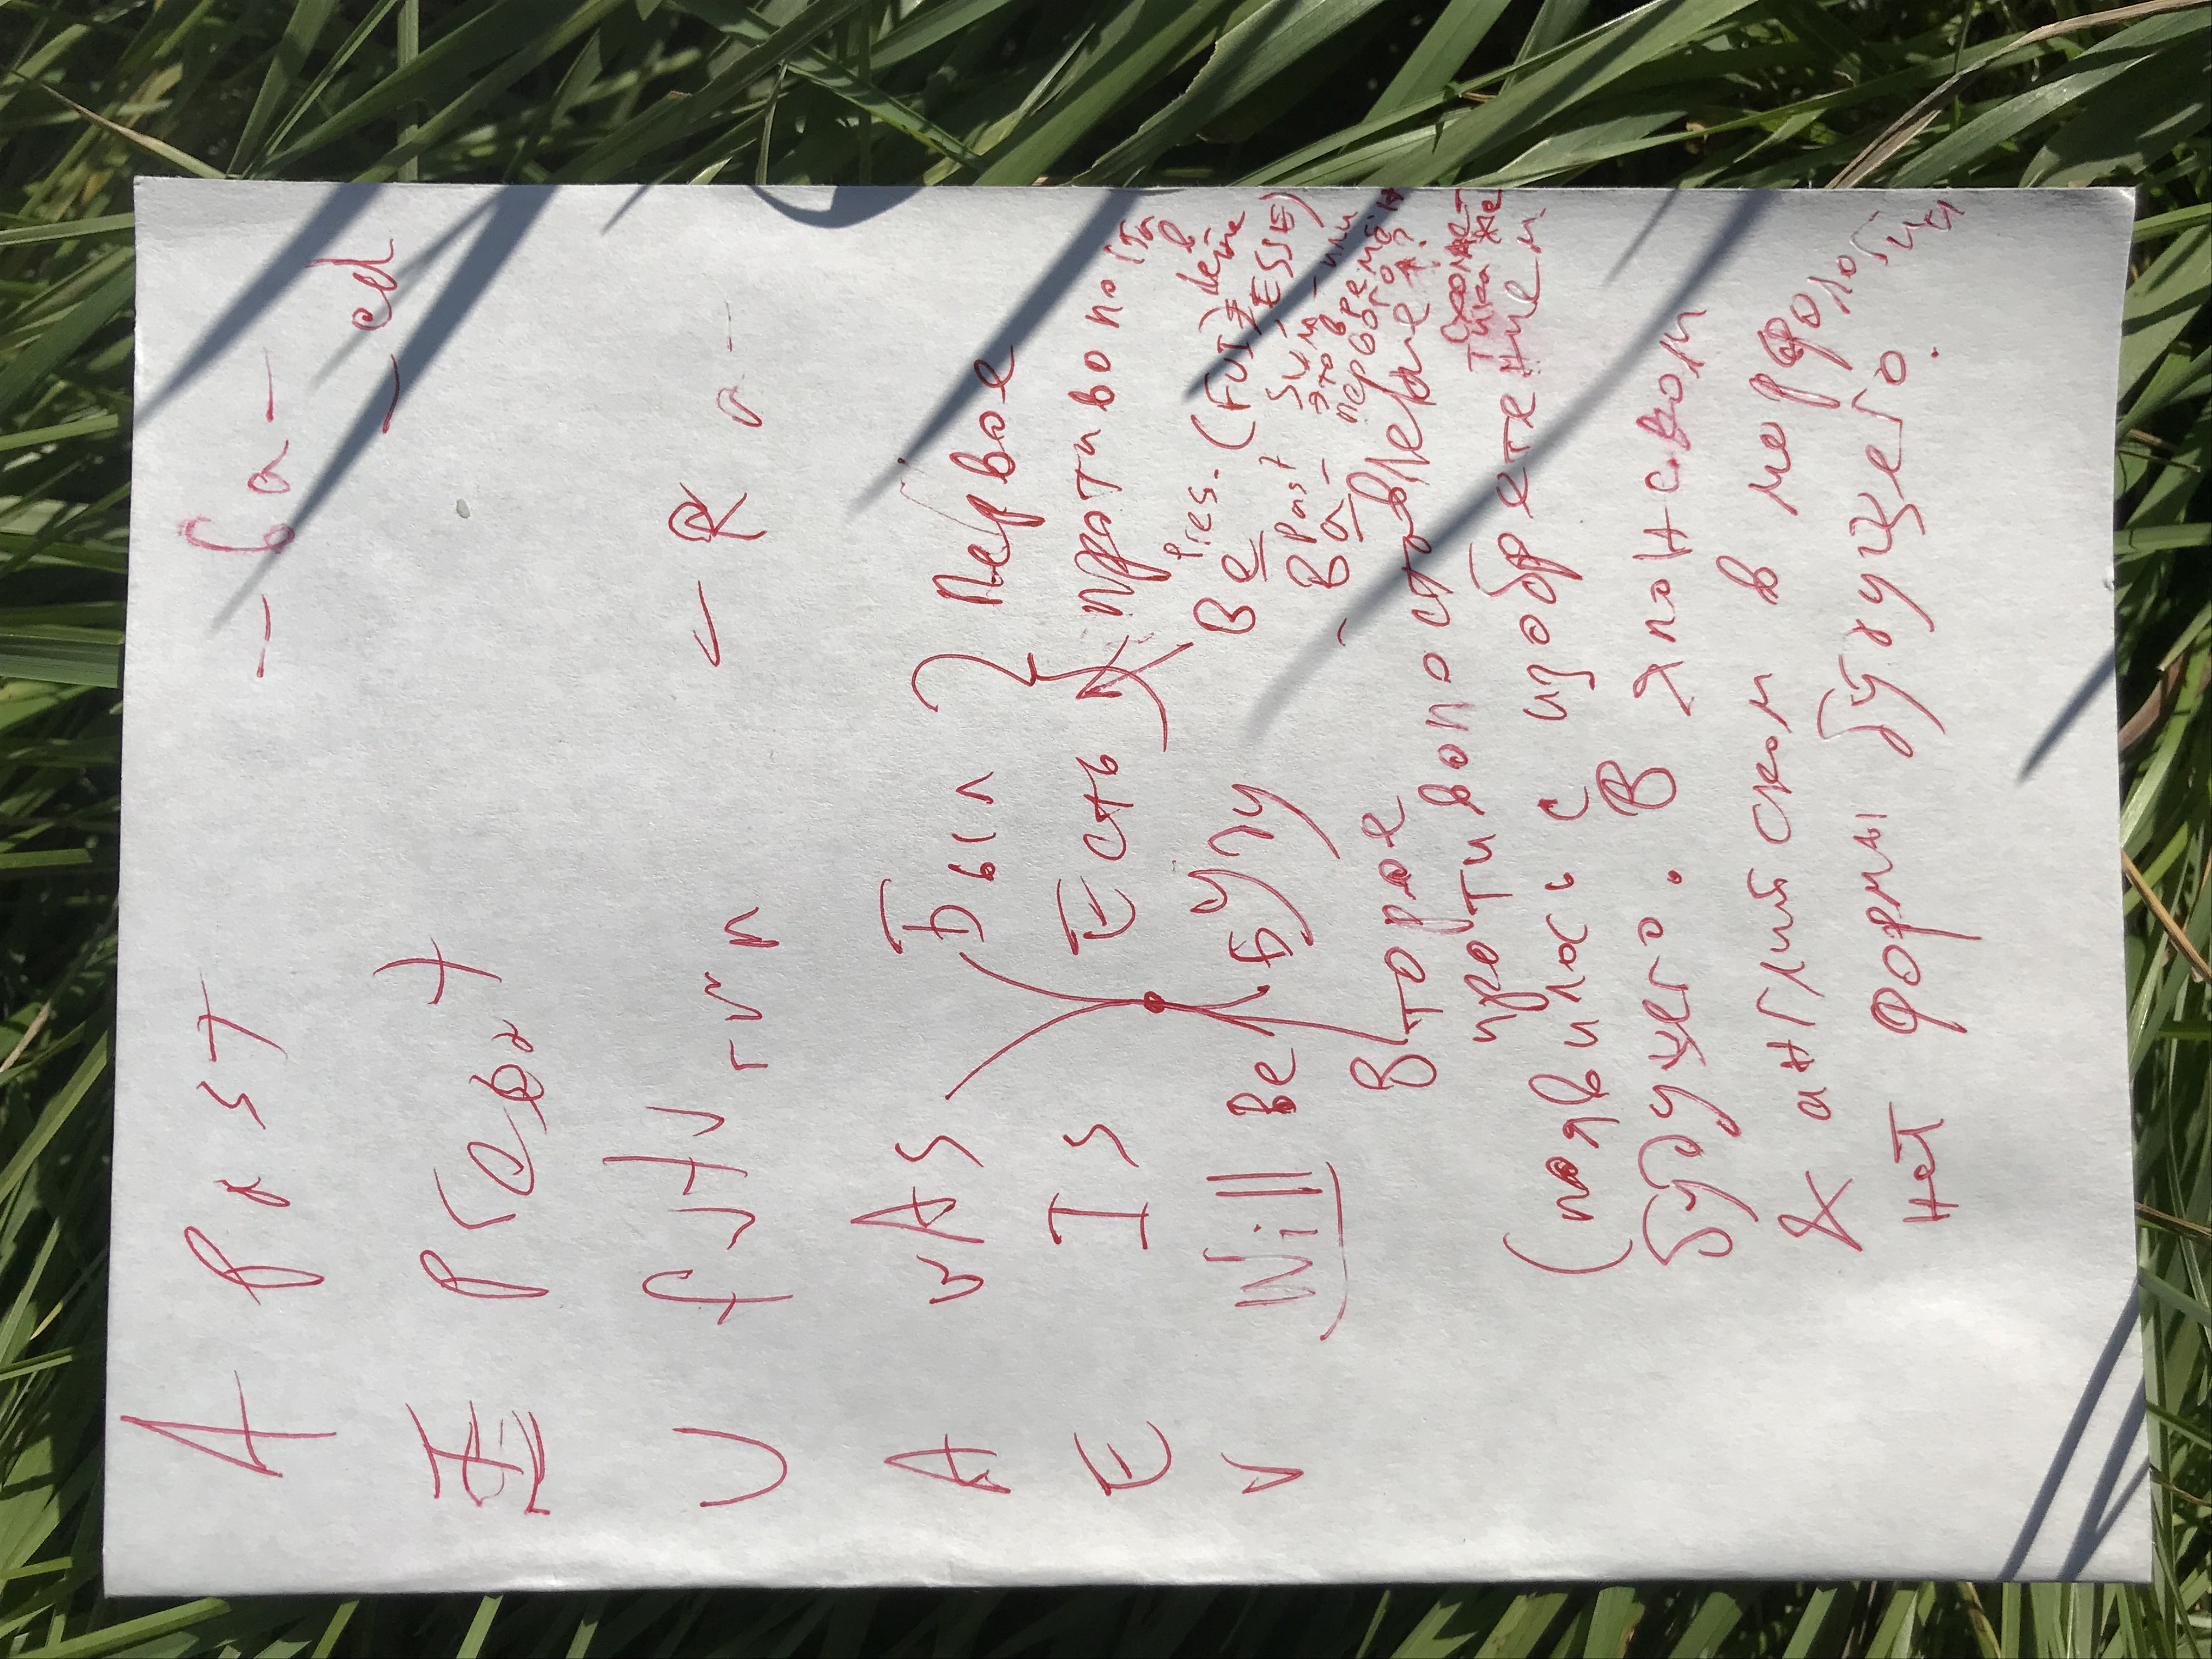 A past -ba-
-ed
E Present
U futurum - Ra-
A wAs Был Первое
E Is Есть противопоставление
Pres.
V Will Be Буду Be (FUI ESSE)
Past Sum - или
-Ba- это время
первого
Второе
противопоставление?
схоластика же
(появилось с изобретением
будущего. В японском
& английском в морфологии
нет формы будущего.